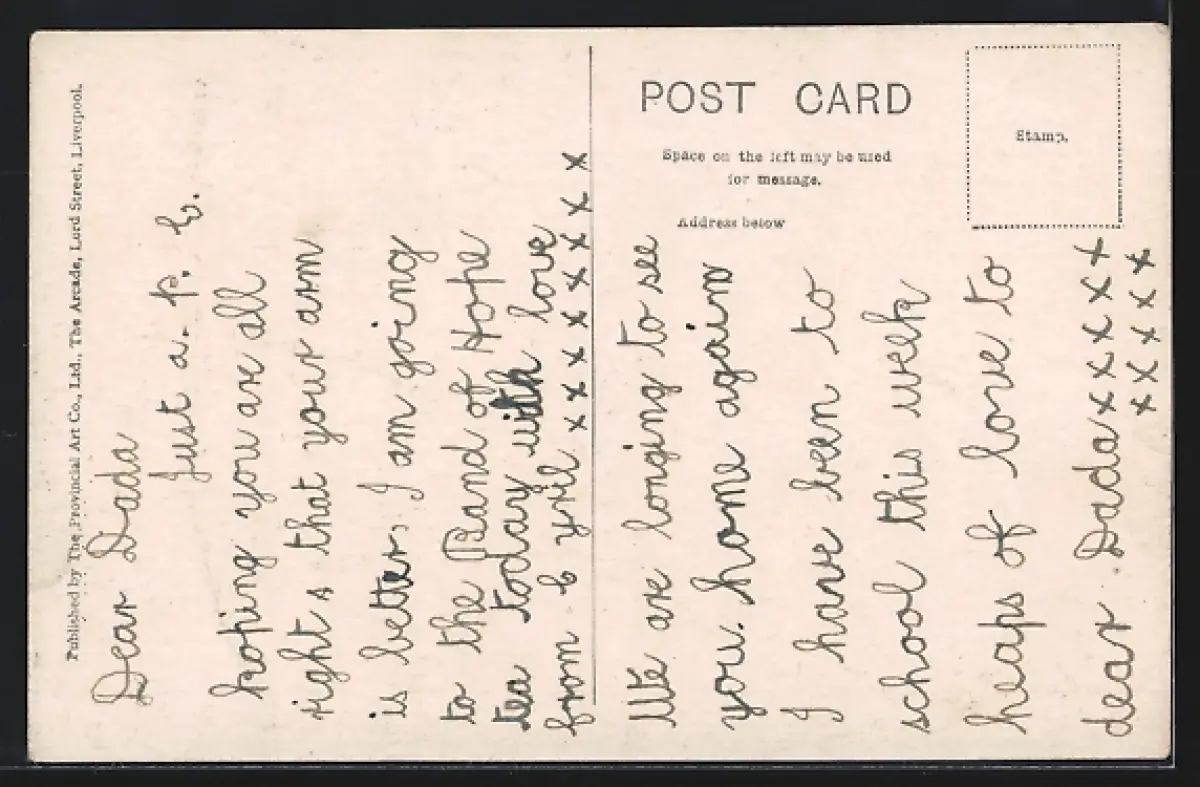 Published by The Provincial Art Co., Ltd., The Arcade, Lord Street, Liverpool.
POST CARD
Space on the left may be used
for message.
Address below
Stamp.
Dear Dada
Just a. P. C.
hoping you are all
right & that your arm
is better, I am going
to the Band of Hope
tea today with love
from Cyril xxxxxxxx
We are longing to see
you home again
I have been to
school this week
heaps of love to
dear Dada xxxxx
xxxxx